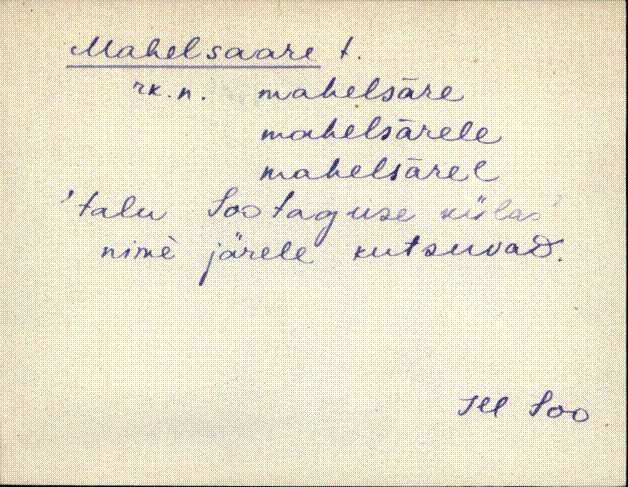 Mahelsaare t.
rk. n. mahelsāre
mahelsārele
mahelsārel
'talu Sootaguse külas'
nime järele kutsuvad.
Soo